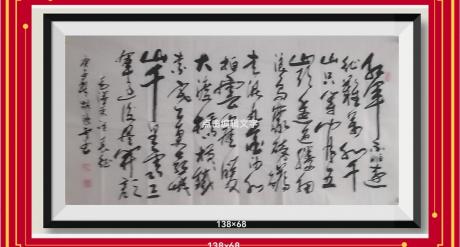 红军不怕远
征难万水千
山只等闲五
岭逶迤腾细
浪乌蒙磅礴
走泥丸金沙水
拍云崖暖
大渡桥横铁
索寒更喜岷
山千里雪三
军过后尽开颜
毛泽东诗长征
点击编辑文字
138×68
138×68